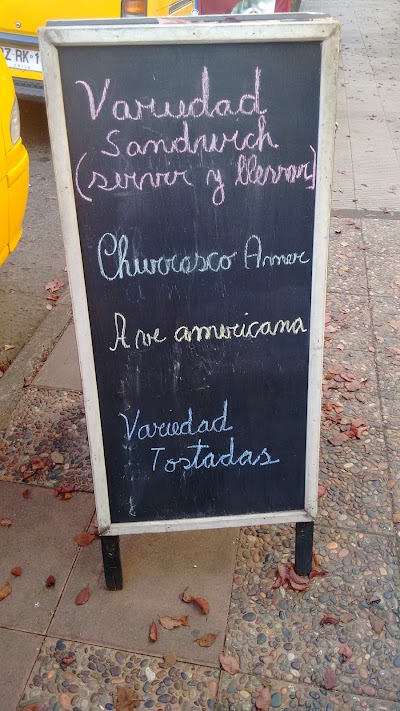 Variedad
Sandwich
(servir y llevar)
Churrasco Amer
Ave americana
Variedad
Tostadas